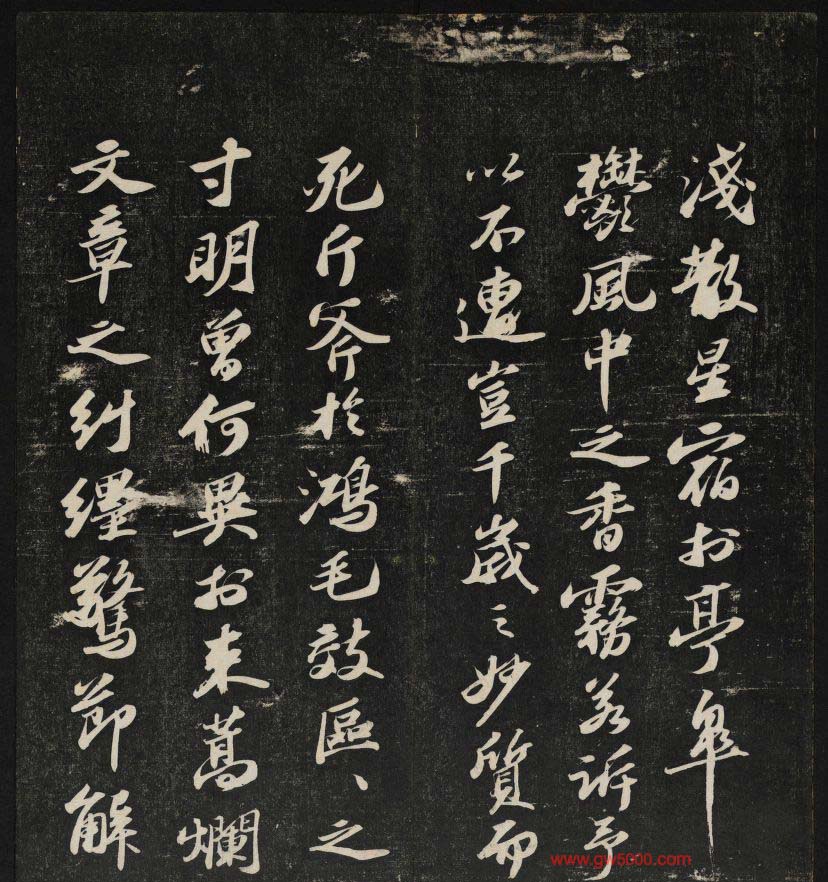 淺散星宿於亭皋
鬱風中之香霧若訴予
以不遭豈千歲之妙質而
死斤斧於鴻毛效區々之
寸明曾何異於束蒿爛
文章之糾纆驚節解
www.gw5000.com